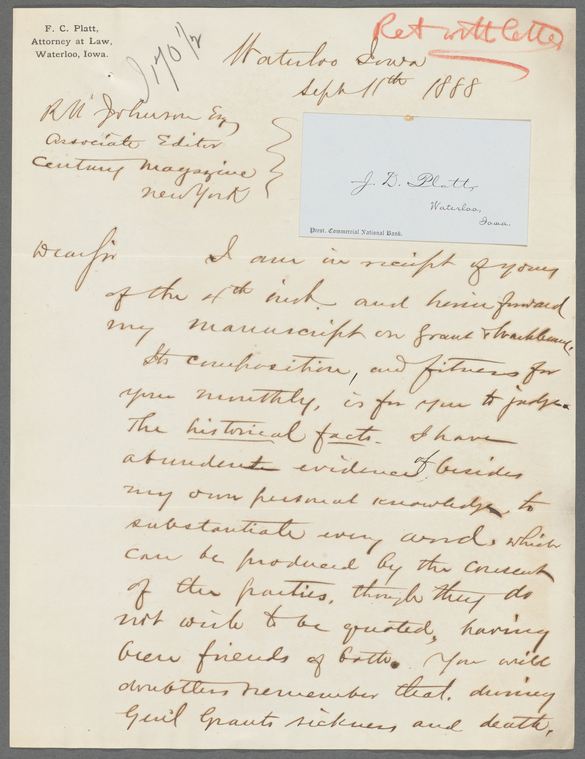 F. C. Platt,
Attorney at Law,
Waterloo, Iowa.
Ret with letter
Waterloo Iowa
Sept 11th 1888
R U Johnson Esq
Associate Editor
Century Magazine
New York
J. D. Platt,
Waterloo,
Iowa.
Prest. Commercial National Bank.
Dear Sir I am in receipt of yours
of the inst. and herein forward
my manuscript on Grant & Washburne.
Its composition, and fitness for
your monthly, is for you to judge.
The historical facts. I have
abundent evidence of, besides
my own personal knowledge, to
substantiate every word. which
can be produced by the consent
of the parties, though they do
not wish to be quoted, having
been friends of both. You will
doubtless remember that, during
Genl Grants sickness and death,